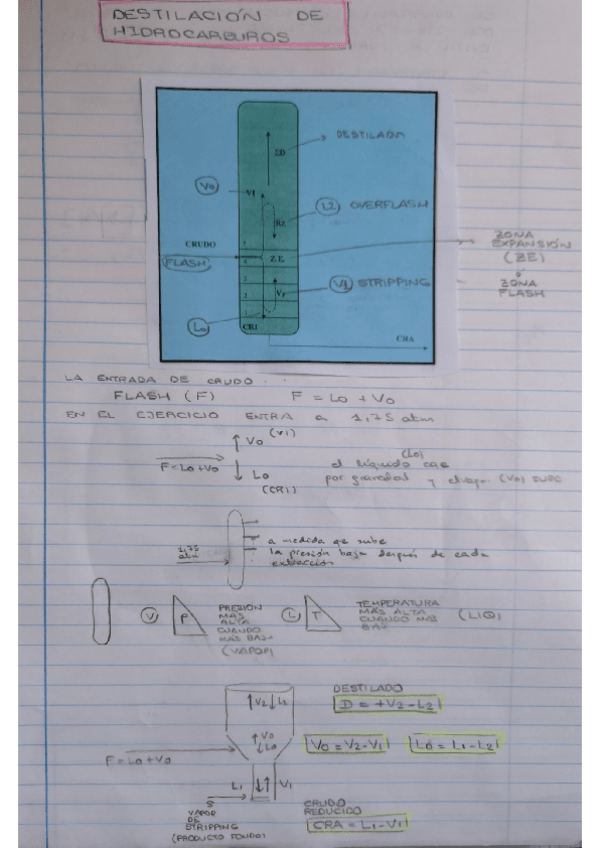 DESTILACIÓN DE
HIDROCARBUROS
DESTILADA
ZD
V0
V1
L2 OVERFLASH
RZ
CRUDO
FLASH
Z E
ZONA
EXPANSIÓN
(ZE)
ó
ZONA
FLASH
V1 STRIPPING
L0
CR1
CRA
LA ENTRADA DE CRUDO
FLASH (F) F = L0 + V0
EN EL EJERCICIO ENTRA a 1,75 atm
V0 (V1)
F = L0 + V0
L0
(CR1)
(L0)
el líquido cae
por gravedad y el vapor (V0) sube
1,75
atm
a medida qe sube
la presión baja después de cada
extracción
V P
PRESIÓN
MÁS
ALTA
CUANDO
MÁS BAJO
(VAPOR)
L T
TEMPERATURA
MÁS ALTA
CUANDO MÁS
BAJ
(LIQ)
V2 L2
DESTILADO
D = +V2 - L2
V0
L0
V0 = V2 - V1 L0 = L1 - L2
F = L0 + V0
L1 V1
S
VAPOR
DE
STRIPPING
(PRODUCTO FONDO)
CRUDO
REDUCIDO
CRA = L1 - V1